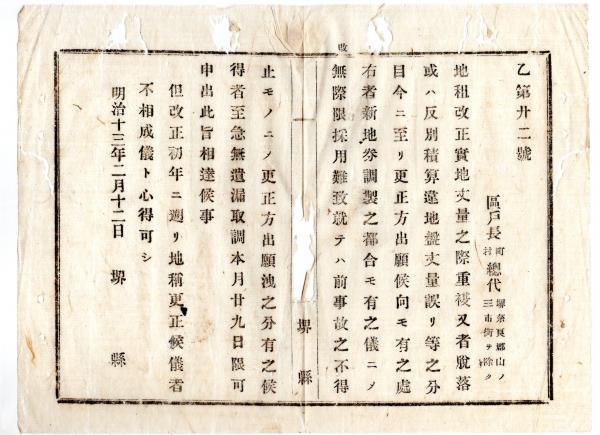 乙第廿二號
區戸長 町村 總代 堺奈良郡山ノ三市街ヲ除ク
地租改正實地丈量之際重複又者脱落
或ハ反別積算違地盤丈量誤リ等之分
目今ニ至リ更正方出願候向モ有之處
右者新地券調製之都合モ有之儀ニノ
無際限採用難致就テハ前事故之不得
堺縣
止モノニノ更正方出願洩之分有之候
得者至急無遺漏取調本月廿九日限可
申出此旨相達候事
但改正初年ニ遡リ地稱更正候儀者
不相成儀ト心得可シ
明治十三年二月十二日 堺縣